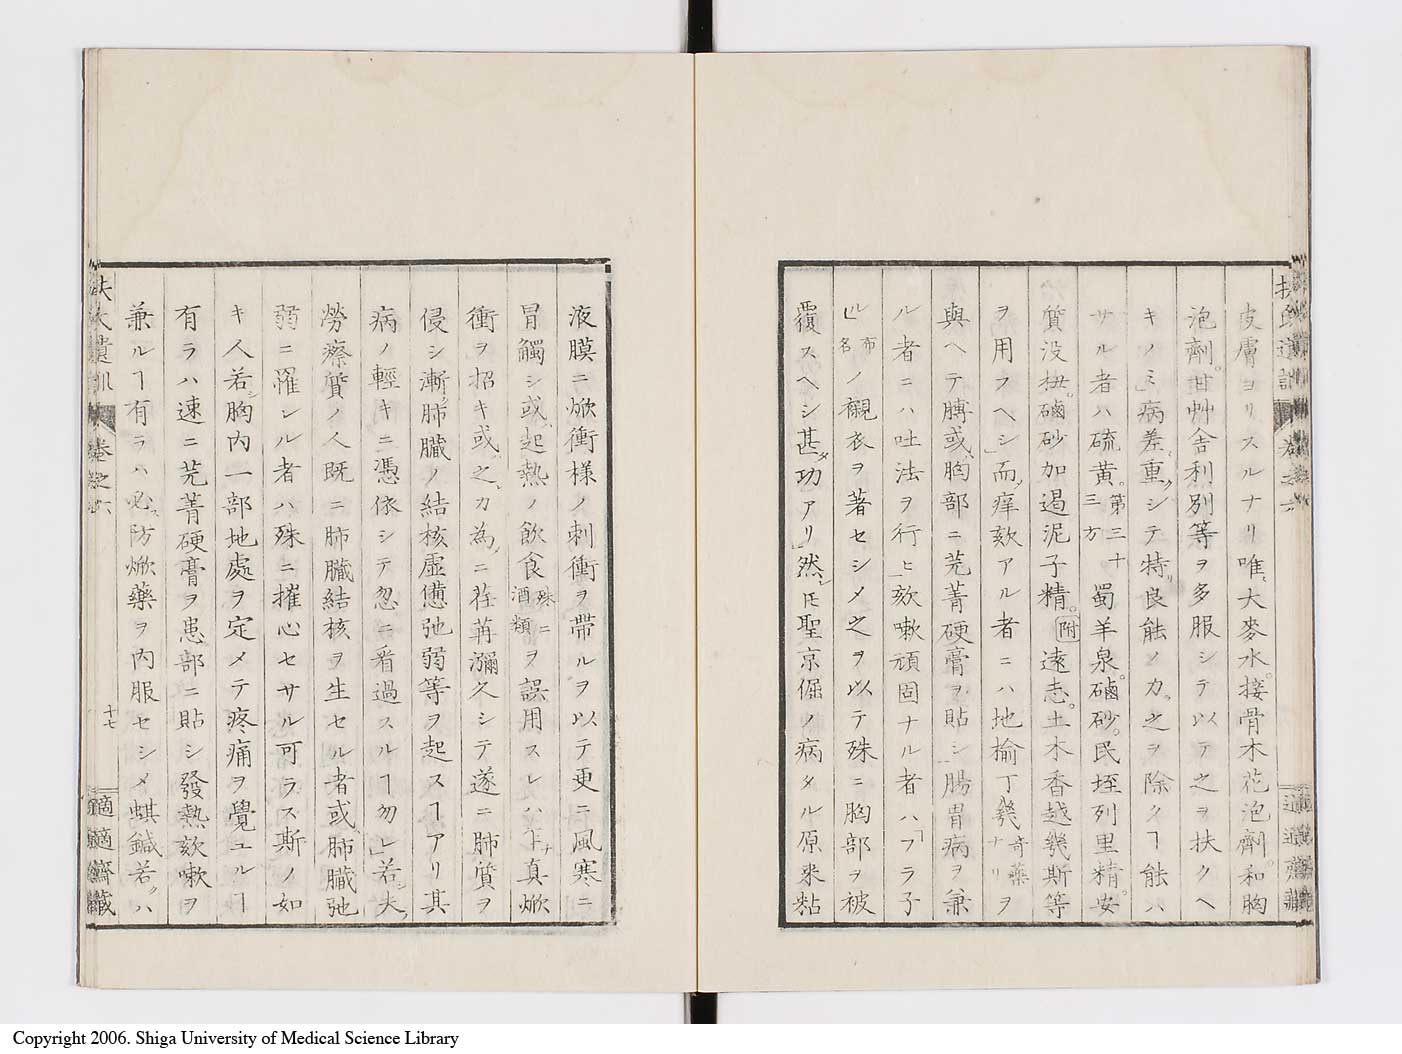 皮膚ヨリスルナリ唯大麥水。接骨木花泡劑。和胸
泡劑。甘艸舎利別等ヲ多服シテ以テ之ヲ扶クヘ
キノミ」病差重クシテ特リ良能ノ力。之ヲ除クヿ能ハ
サル者ハ硫黄。第三十三方 蜀羊泉。磠砂。民垤列里精。安
質没扭。磠砂加遏泥子精。附遠志。土木香越幾斯等
ヲ用フヘシ」而ノ痒欬アル者ニハ地榆丁幾奇藥ナリヲ
與ヘテ膊或ハ胸部ニ芫菁硬膏ヲ貼シ腸胃病ヲ兼
ル者ニハ吐法ヲ行ヒ」欬嗽頑固ナル者ハフラ子
ル」布名ノ襯衣ヲ著セシメ之ヲ以テ殊ニ胸部ヲ被
覆スヘシ甚タ功アリ」然シ𪜈聖京倔ノ病タル原来粘
液膜ニ焮衝様ノ刺衝ヲ帶ルヲ以テ更ニ風寒ニ
冒觸シ或ハ起熱ノ飲食殊ニ酒類ヲ誤用スレハ下ナ真焮
衝ヲ招キ或ハ之カ為ニ荏苒瀰久シテ遂ニ肺質ヲ
侵シ漸ク肺臓ノ結核虚憊弛弱等ヲ起スヿアリ其
病ノ輕キニ憑依シテ忽ニ看過スルヿ勿レ」若シ夫レ
勞瘵質ノ人既ニ肺臓結核ヲ生セル者或ハ肺臓弛
弱ニ罹レル者ハ殊ニ摧心セサル可ラス斯ノ如
キ人若シ胸内一部地處ヲ定メテ疼痛ヲ覺ユルヿ
有ラハ速ニ芫菁硬膏ヲ患部ニ貼シ發熱欬嗽ヲ
兼ルヿ有ラハ必ス防焮藥ヲ内服セシメ蜞鍼若クハ
扶氏遺訓 卷之六 十七 適適齋藏